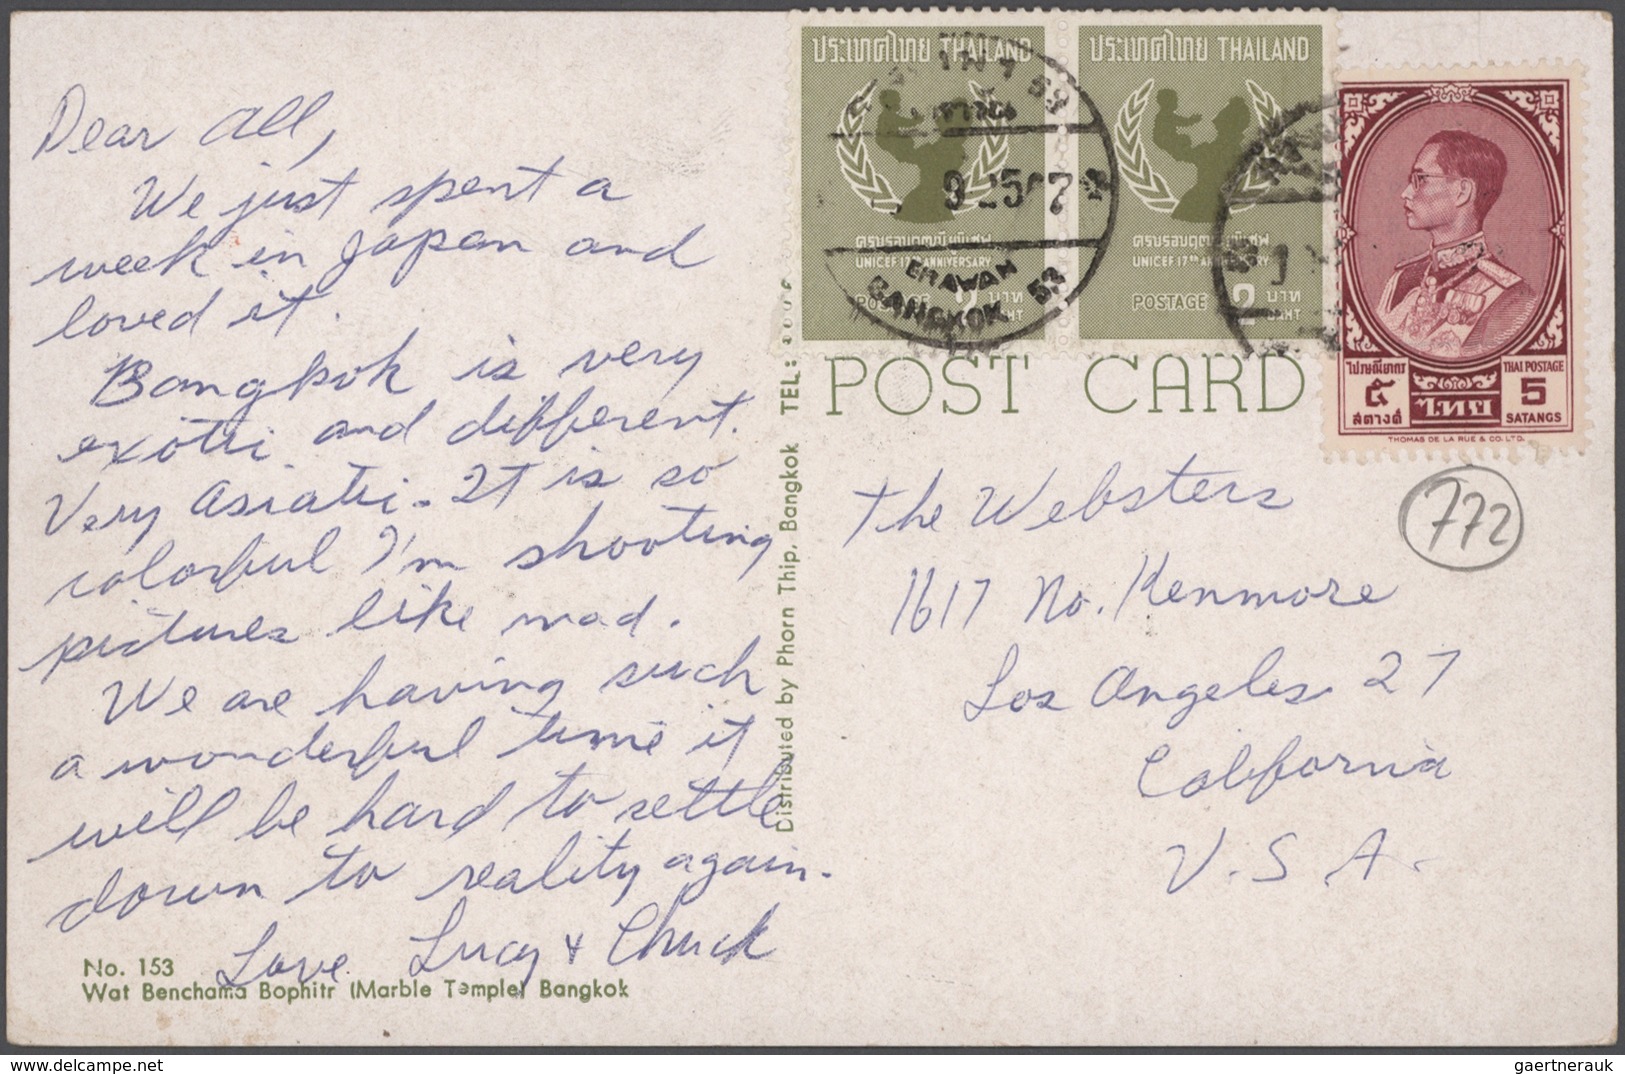 Dear All,
We just spent a
week in Japan and
loved it.
Bangkok is very
exotic and different.
Very Asiatic. It is so
colorful I'm shooting
pictures like mad.
We are having such
a wonderful time it
will be hard to settle
down to reality again.
Love Lucy & Chuck
No. 153
Wat Benchama Bophitr (Marble Temple) Bangkok
Distributed by Phorn Thip, Bangkok TEL:
ประเทศไทย THAILAND
ครบรอบ
UNICEF 17TH ANNIVERSARY
POSTAGE 2 บาท
BAHT
ประเทศไทย THAILAND
ครบรอบ
UNICEF 17TH ANNIVERSARY
POSTAGE 2 บาท
BAHT
ERAWAN
BANGKOK 53
ไปรษณียากร THAI POSTAGE
๕ ไทย 5
สตางค์ SATANGS
THOMAS DE LA RUE & CO. LTD.
POST CARD
772
The Websters
1617 No. Kenmore
Los Angeles 27
California
U.S.A.
gaertnerauk